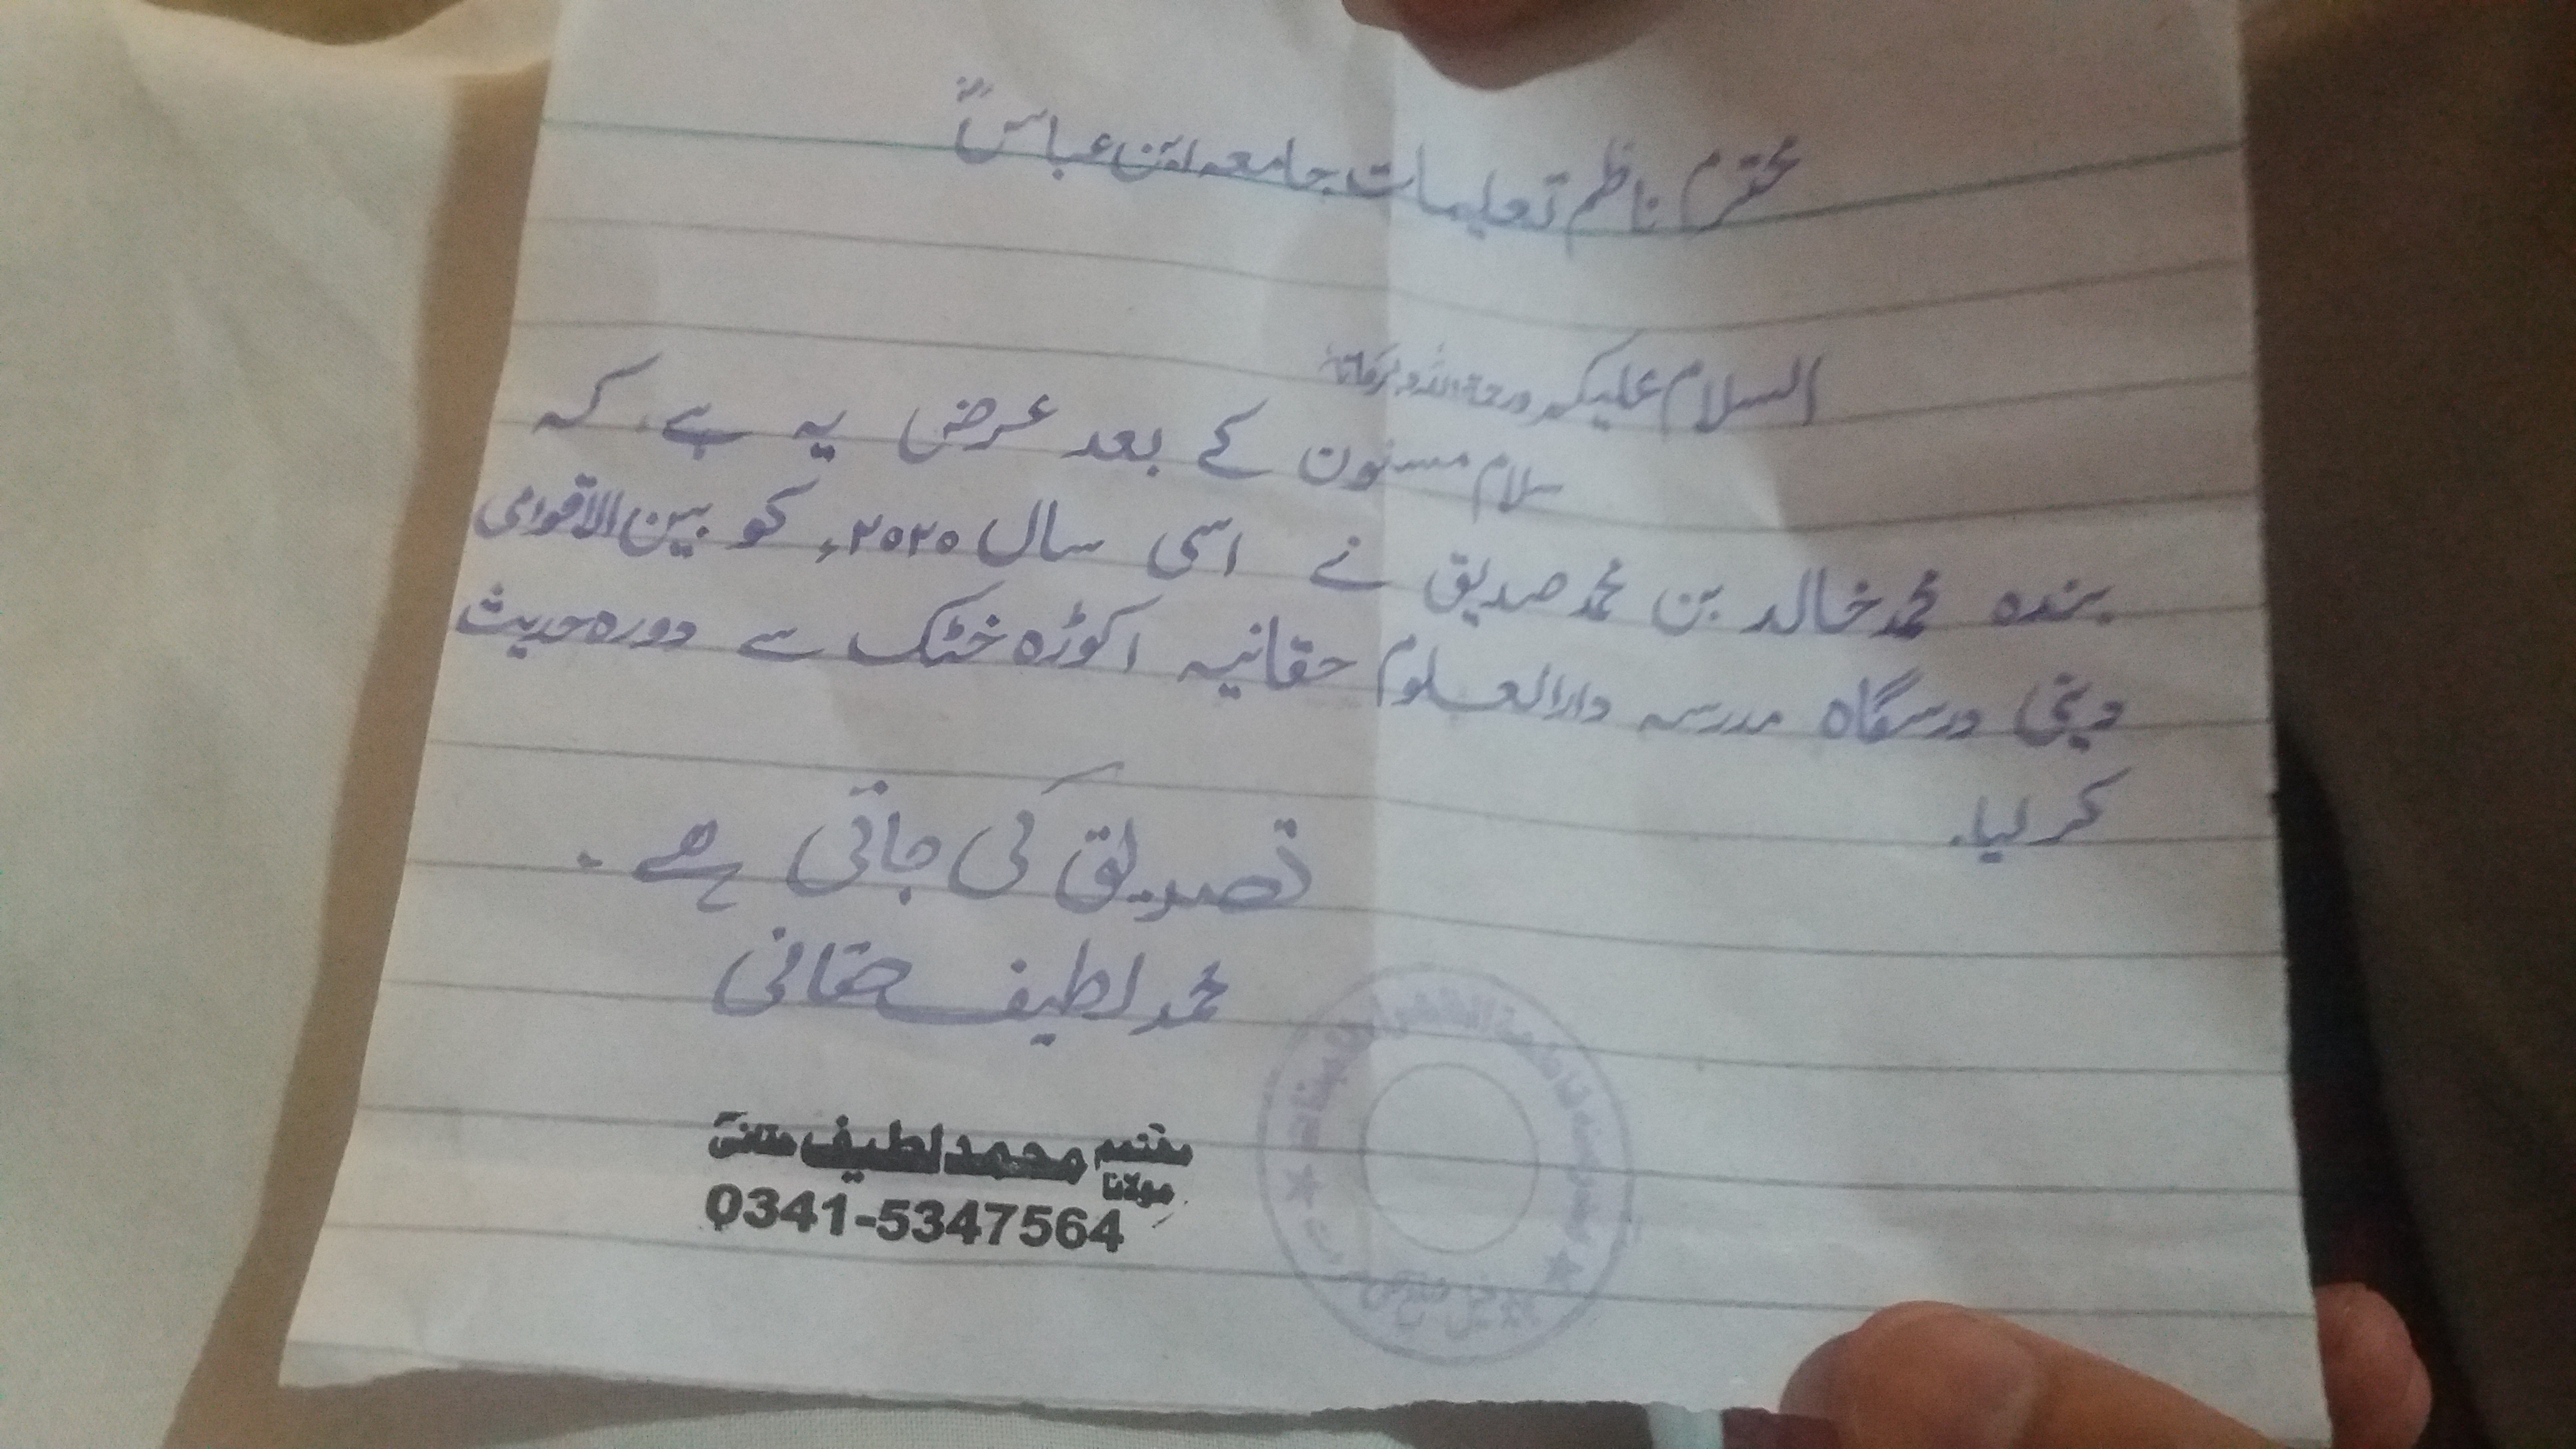 محترم ناظم تعلیمات جامعہ ابن عباسؓ
السلام علیکم ورحمۃ اللہ وبرکاتہ
سلام مسنون کے بعد عرض یہ ہے، کہ
بندہ محمد خالد بن محمد صدیق نے اسی سال ۲۰۲۰ء کو بین الاقوامی
دینی درسگاہ مدرسہ دارالعلوم حقانیہ اکوڑہ خٹک سے دورہ حدیث
کرلیا.
تصدیق کی جاتی ہے۔
محمد لطیف حقانی
مہتمم مولانا محمد لطیف حقانی
0341-5347564